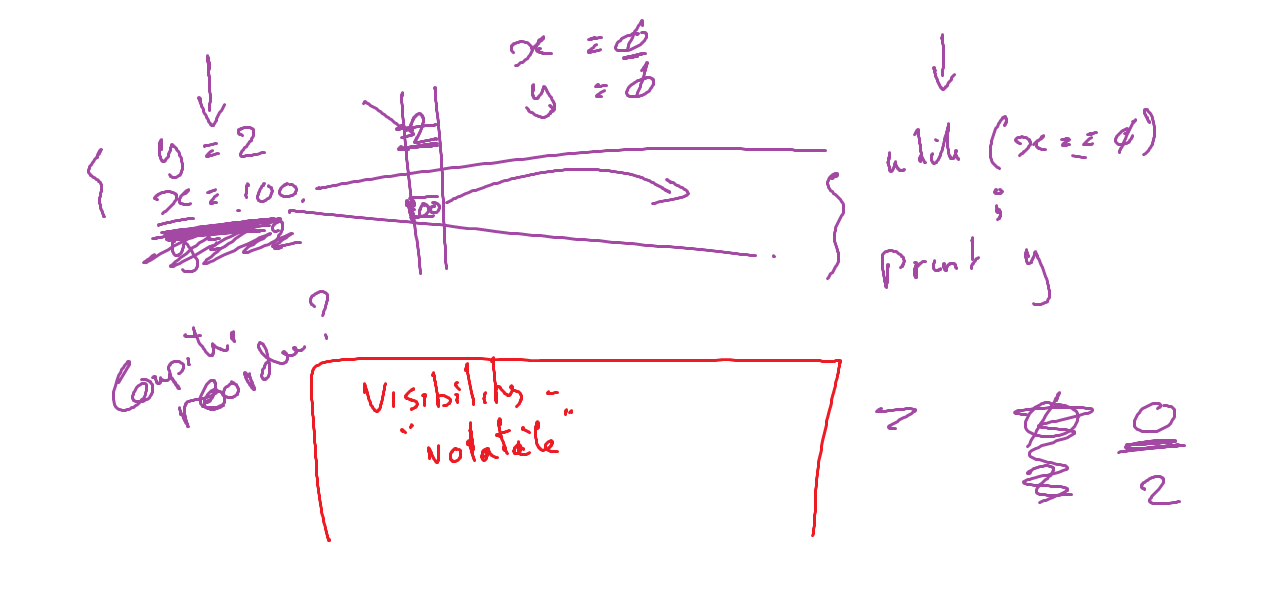 x = ϕ
y = ϕ
y = 2
x = 100.
2
100
while (x == ϕ)
;
print y
Compiler
reorder?
Visibility -
"volatile"
0
2